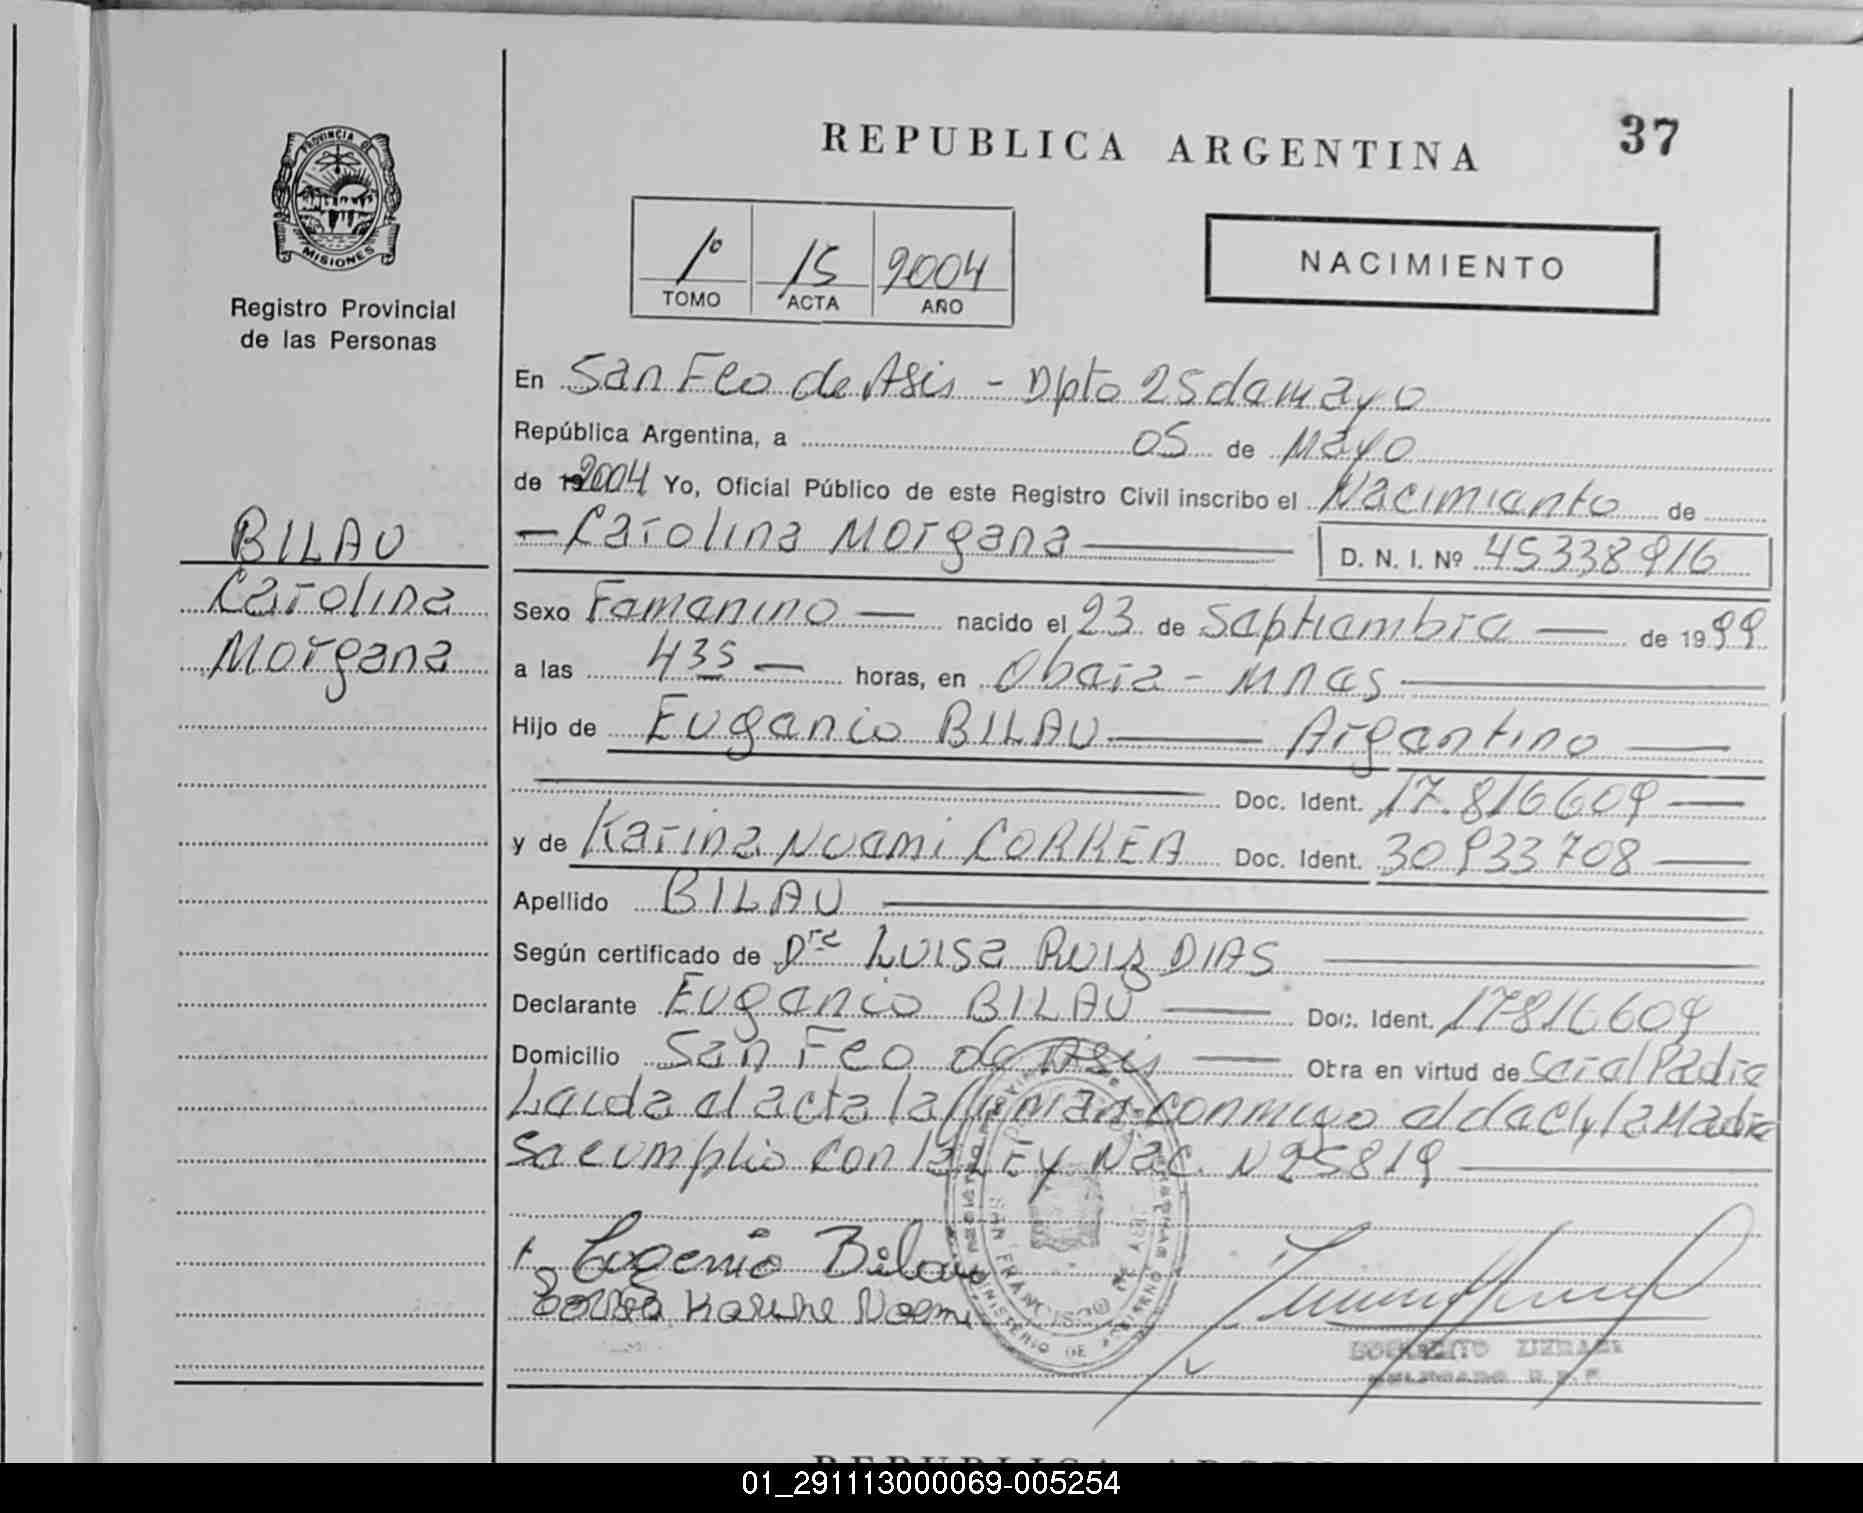 PROVINCIA DE
MISIONES
Registro Provincial
de las Personas
BILAU
Carolina
Morgana
REPUBLICA ARGENTINA
37
1º 15 2004
TOMO ACTA AÑO
NACIMIENTO
En San Fco de Asis - Dpto 25 de mayo
República Argentina, a 05 de Mayo
de 19 2004 Yo, Oficial Público de este Registro Civil inscribo el Nacimiento de
— Carolina Morgana — D. N. I. Nº 45338916
Sexo Femenino — nacido el 23 de Septiembre — de 19 99
a las 4 35 — horas, en Obera - Mnes
Hijo de Eugenio BILAU — Argentino —
Doc. Ident. 17.816609 —
y de Karina Noemi CORREA Doc. Ident. 30933708 —
Apellido BILAU —
Según certificado de Dra Luisa Ruiz DIAS —
Declarante Eugenio BILAU — Doc. Ident. 17816609
Domicilio San Fco de Asis — Obra en virtud de ser el Padre
Leida el acta la firman conmigo el decl y la Madre
se cumplio con la LEy Nac. N 25819 —
Eugenio Bilau
Correa Karine Noemi
SAN FRANCISCO DE ASIS
MINISTERIO DE GOBIERNO
01_291113000069-005254